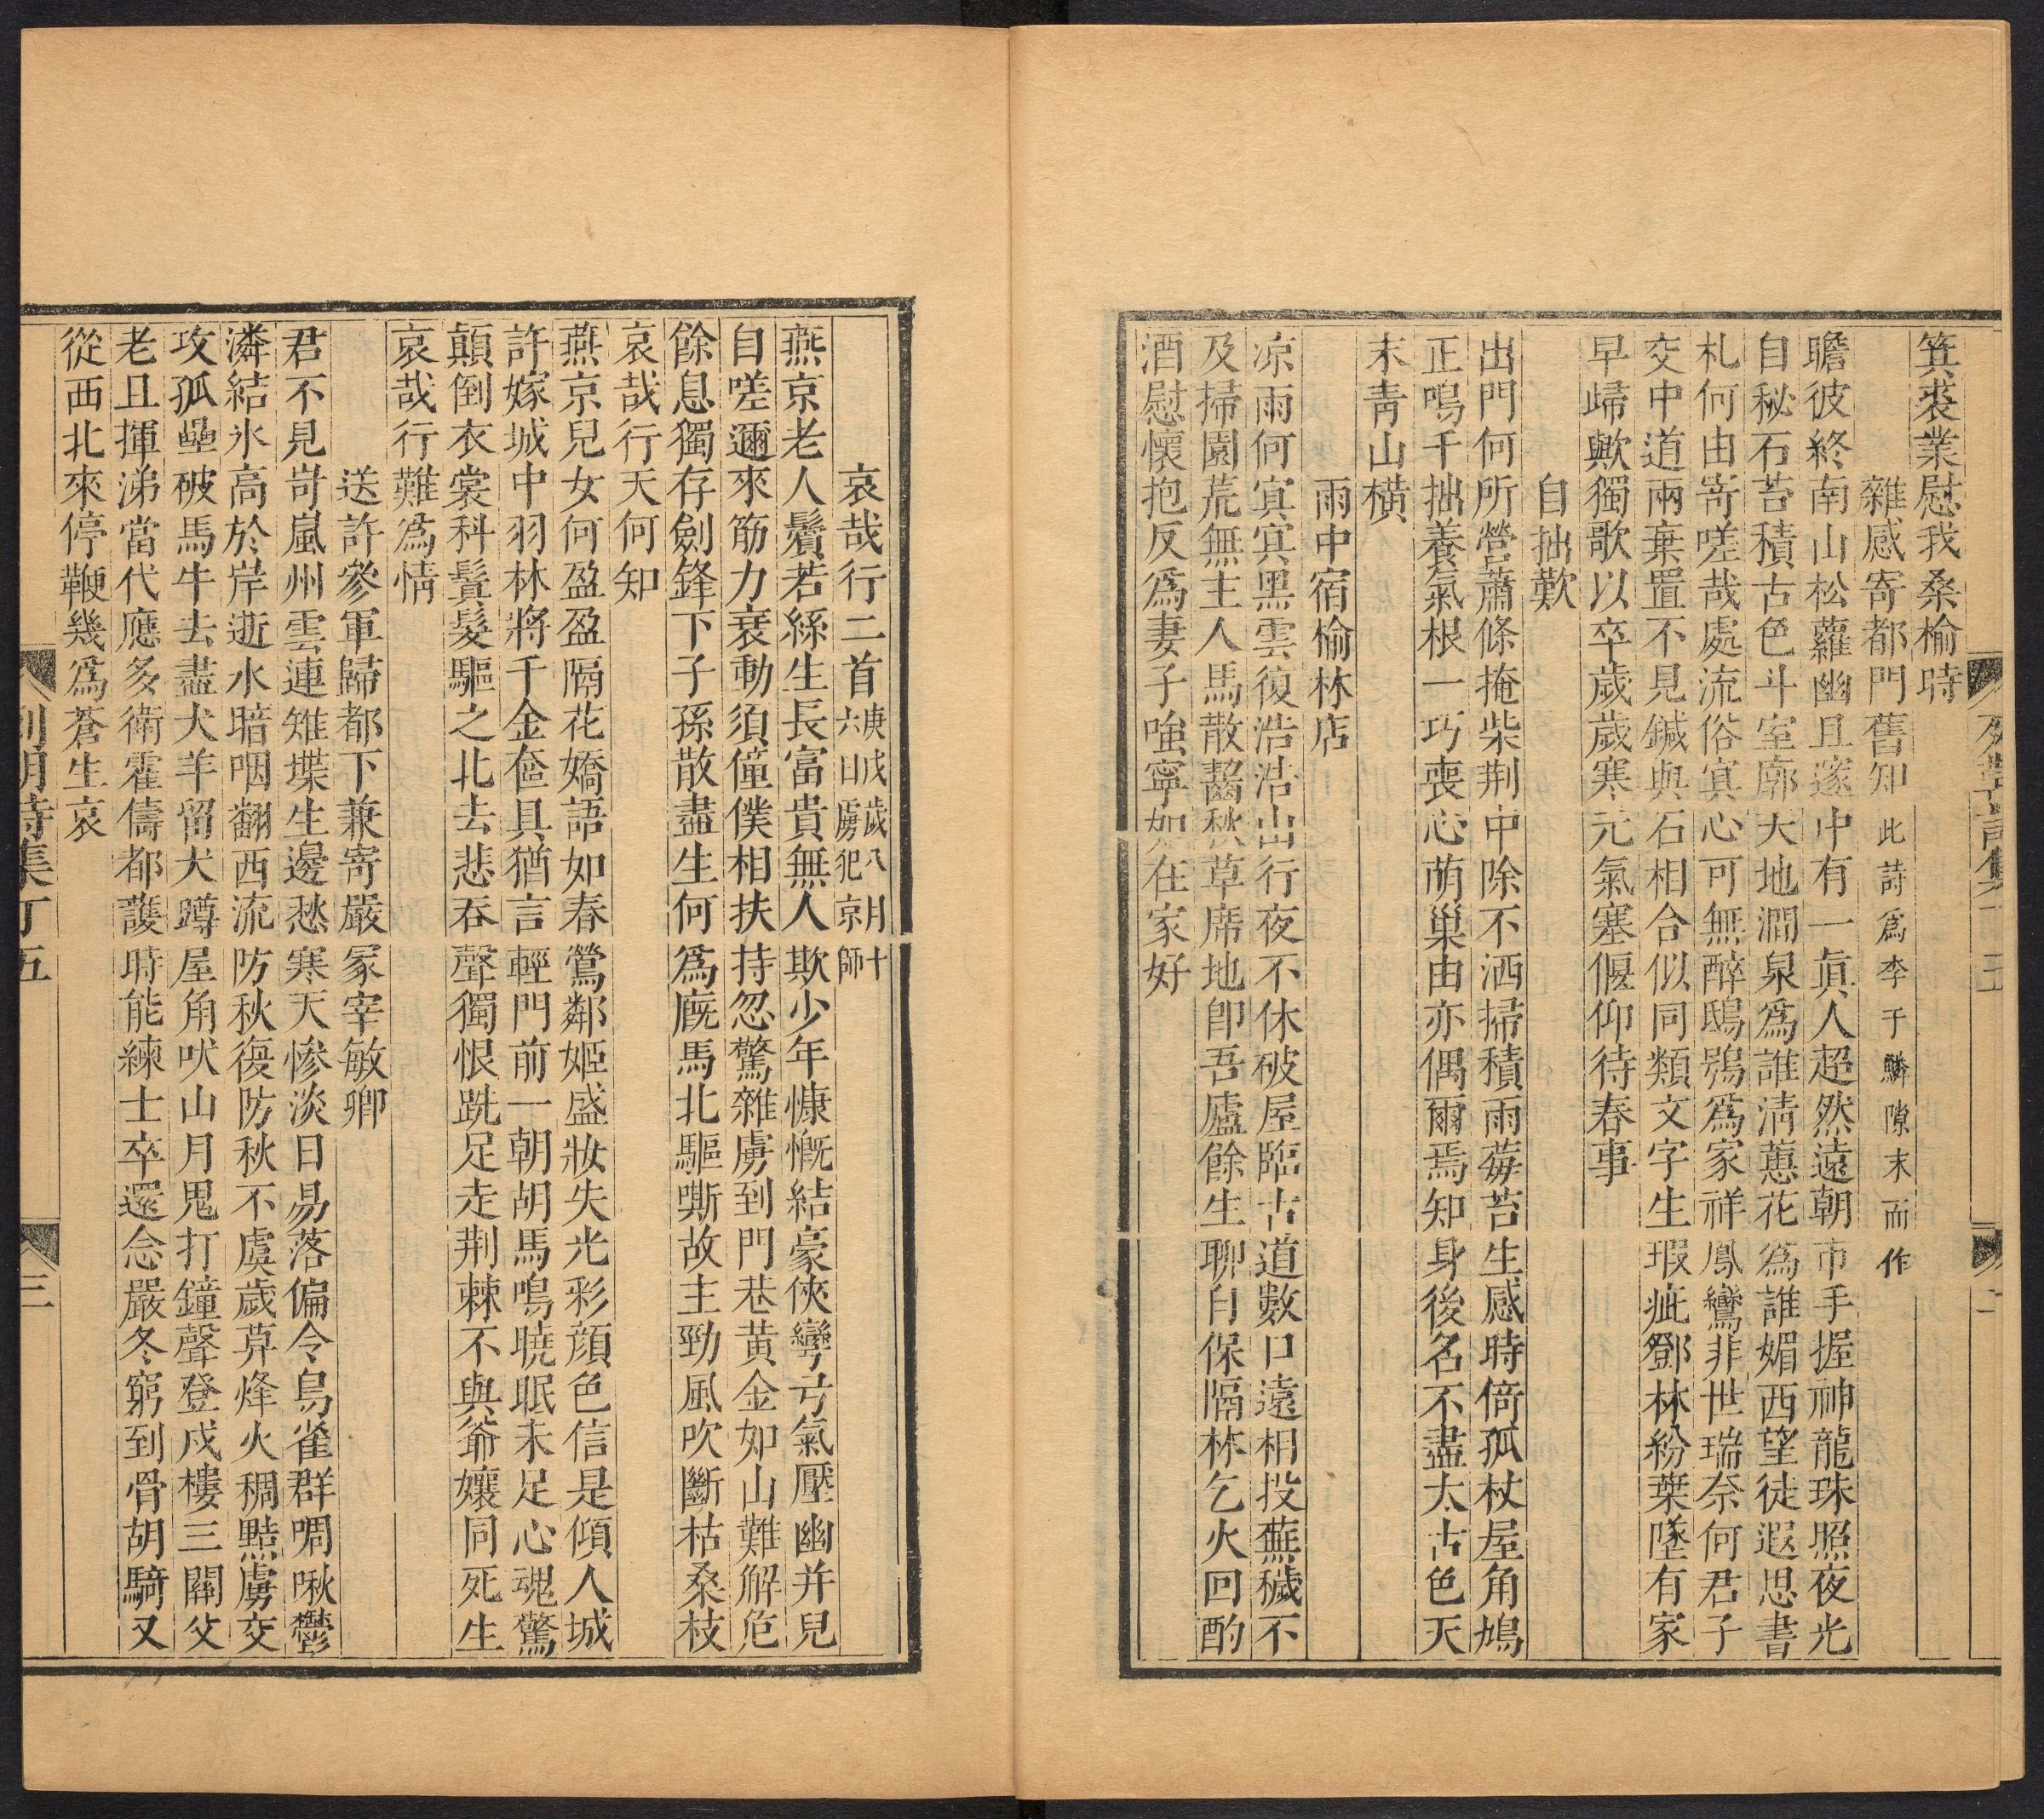 箕裘業慰我桑榆時
雜感寄都門舊知此詩爲李于鱗隙末而作
瞻彼終南山松蘿幽且邃中有一眞人超然遠朝市手握神龍珠照夜光
自秘石苔積古色斗室廓天地澗泉爲誰淸蕙花為誰媚西望徒遐思書
札何由寄嗟哉處流俗寘心可無醉鴟鴞爲家祥鳳鸞非世瑞奈何君子
交中道兩棄置不見鍼與石相合似同類文字生瑕疵鄧林紛葉墜有家
早歸歟獨歌以卒歲歲寒元氣塞偃仰待春事
自拙歎
出門何所營蕭條掩柴荆中除不洒掃積雨莓苔生感時倚孤杖屋角鳩
正鳴千拙養氣根一巧喪心萌巢由亦偶爾焉知身後名不盡太古色天
末靑山橫
雨中宿榆林店
凉雨何寘寘黑雲復浩浩山行夜不休破屋臨古道數口遠相投蕪穢不
及掃園荒無主人馬散齧秋草席地卽吾廬餘生聊自保隔林乞火回酌
酒慰懷抱反爲妻子嗤寧如在家好
哀哉行二首庚戌歲八月十
六日虜犯京師
燕京老人鬢若絲生長富貴無人欺少年慷慨結豪俠彎弓氣壓幽并兒
自嗟邇來筋力衰動須僮僕相扶持忽驚雜虜到門巷黃金如山難解危
餘息獨存劍鋒下子孫散盡生何爲廐馬北驅嘶故主勁風吹斷枯桑枝
哀哉行天何知
燕京兒女何盈盈隔花嬌語如春鶯鄰姬盛妝失光彩顏色信是傾人城
許嫁城中羽林將千金奩具猶言輕門前一朝胡馬鳴曉眠未足心魂驚
顛倒衣裳科鬢髮驅之北去悲吞聲獨恨跣足走荆棘不與爺孃同死生
哀哉行難爲情
送許參軍歸都下兼寄嚴冡宰敏卿
君不見岢嵐州雲連雉堞生邊愁寒天慘淡日易落偏令鳥雀群啁啾鬱
潾結氷高於岸逝水暗咽翻西流防秋復防秋不虞歲莽烽火稠黠虜交
攻孤壘破馬牛去盡犬羊留犬蹲屋角吠山月鬼打鐘聲登戍樓三關父
老且揮涕當代應多衛霍儔都護時能練士卒還念嚴冬窮到骨胡騎又
從西北來停鞭幾爲蒼生哀
列朝詩集丁五
三